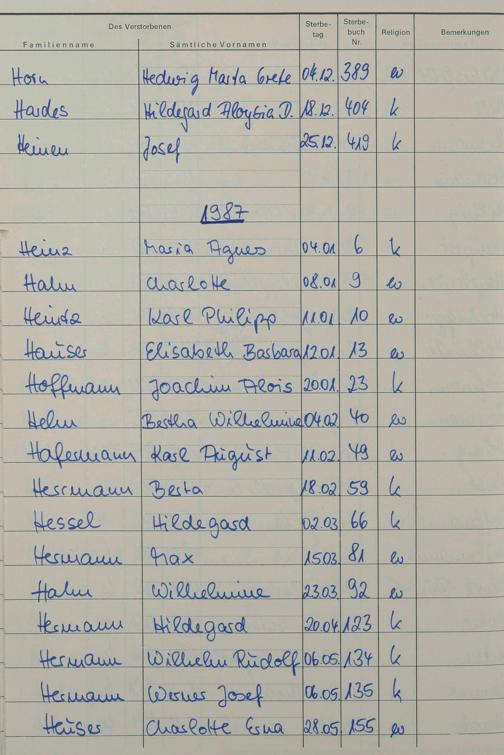 Des Verstorbenen Sterbe- Sterbe- Religion Bemerkungen
Familienname Sämtliche Vornamen tag buch Nr.
Horn Hedwig Marta Grete 04.12. 389 ev
Hardes Hildegard Aloysia D. 18.12. 404 k
Heinen Josef 25.12. 419 k
1987
Heinz Maria Agnes 04.01 6 k
Hahn Charlotte 08.01 9 ev
Heintz Karl Philipp 11.01 10 ev
Hauser Elisabeth Barbara 12.01. 13 ev
Hoffmann Joachim Alois 20.01. 23 k
Helm Bertha Wilhelmine 04.02 40 ev
Hafermann Karl August 11.02. 49 ev
Herrmann Berta 18.02 59 k
Hessel Hildegard 02.03 66 k
Hermann Max 15.03. 81 ev
Hahn Wilhelmine 23.03 92 ev
Hermann Hildegard 20.04. 123 k
Hermann Wilhelm Rudolf 06.05. 134 k
Hermann Werner Josef 06.05. 135 k
Heuser Charlotte Erna 28.05. 155 ev